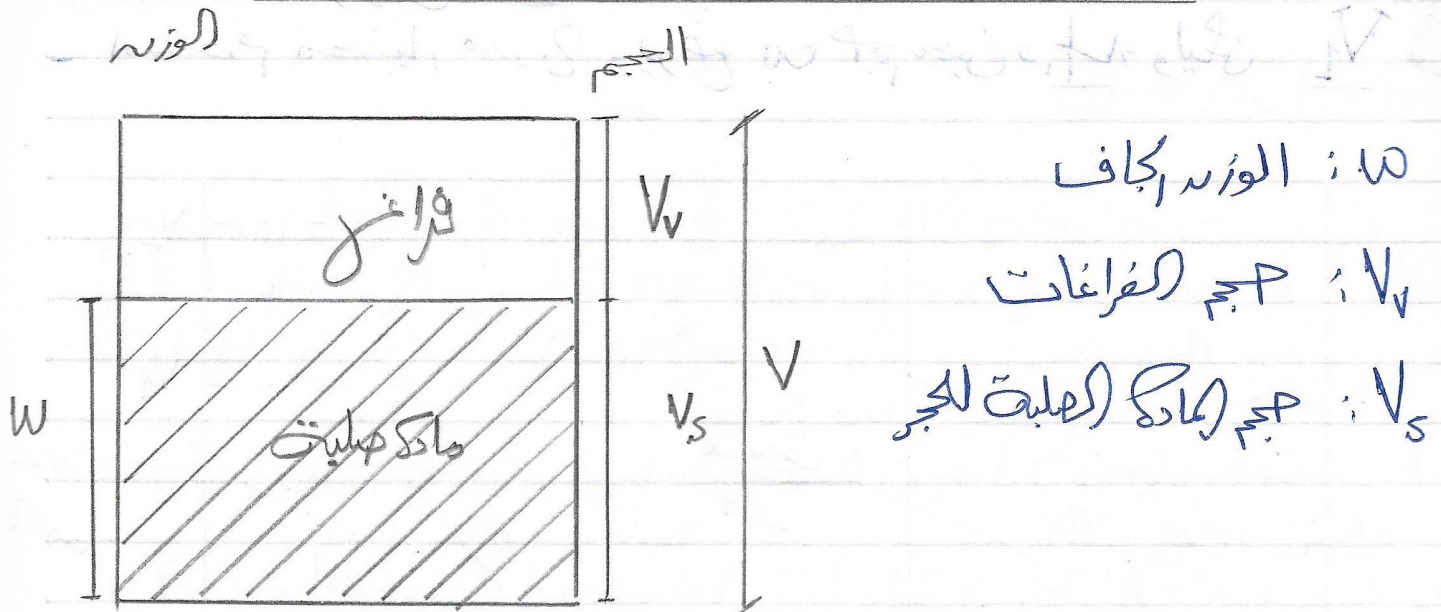 الوزن
الحجم
فراغ
مادة صلبة
W
V_v
V_s
V
W : الوزن الجاف
V_v : حجم الفراغات
V_s : حجم المادة الصلبة للحجر